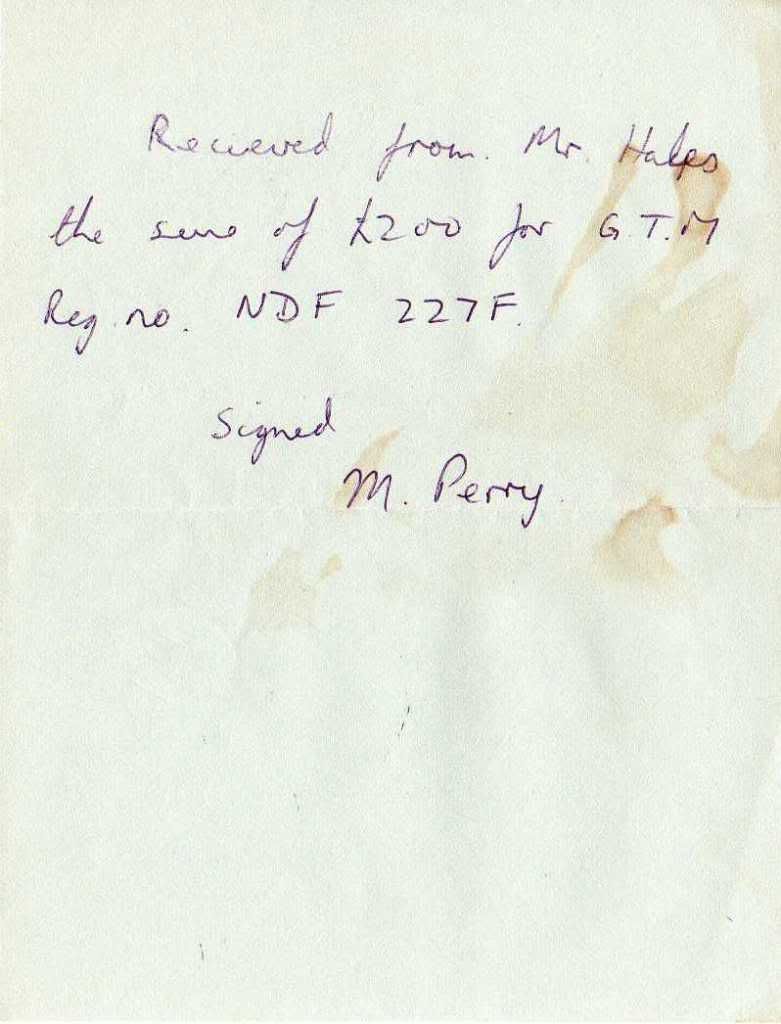 Recieved from. Mr. Hales
the sum of £200 for G.T.M
Reg. no. NDF 227F.
Signed
M. Perry.